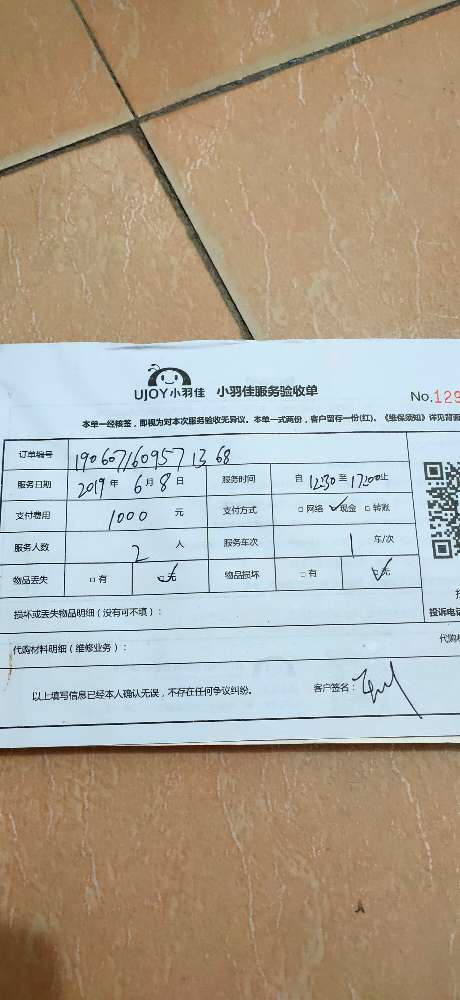 UJOY小羽佳 小羽佳服务验收单
No.129
本单一经核签，即视为对本次服务验收无异议。本单一式两份，客户留存一份(红)。《维保须知》详见背面
订单编号 190607160957 1368
服务日期 2019年 6月8日 服务时间 自 12:30 至 17:00止
支付费用 1000 元 支付方式 □ 网络 ☑现金 □ 转账
服务人数 2 人 服务车次 1 车/次
物品丢失 □ 有 ☑无 物品损坏 □ 有 ☑无
损坏或丢失物品明细（没有可不填）：
投诉电话
代购材料明细（维修业务）：
以上填写信息已经本人确认无误，不存在任何争议纠纷。 客户签名：